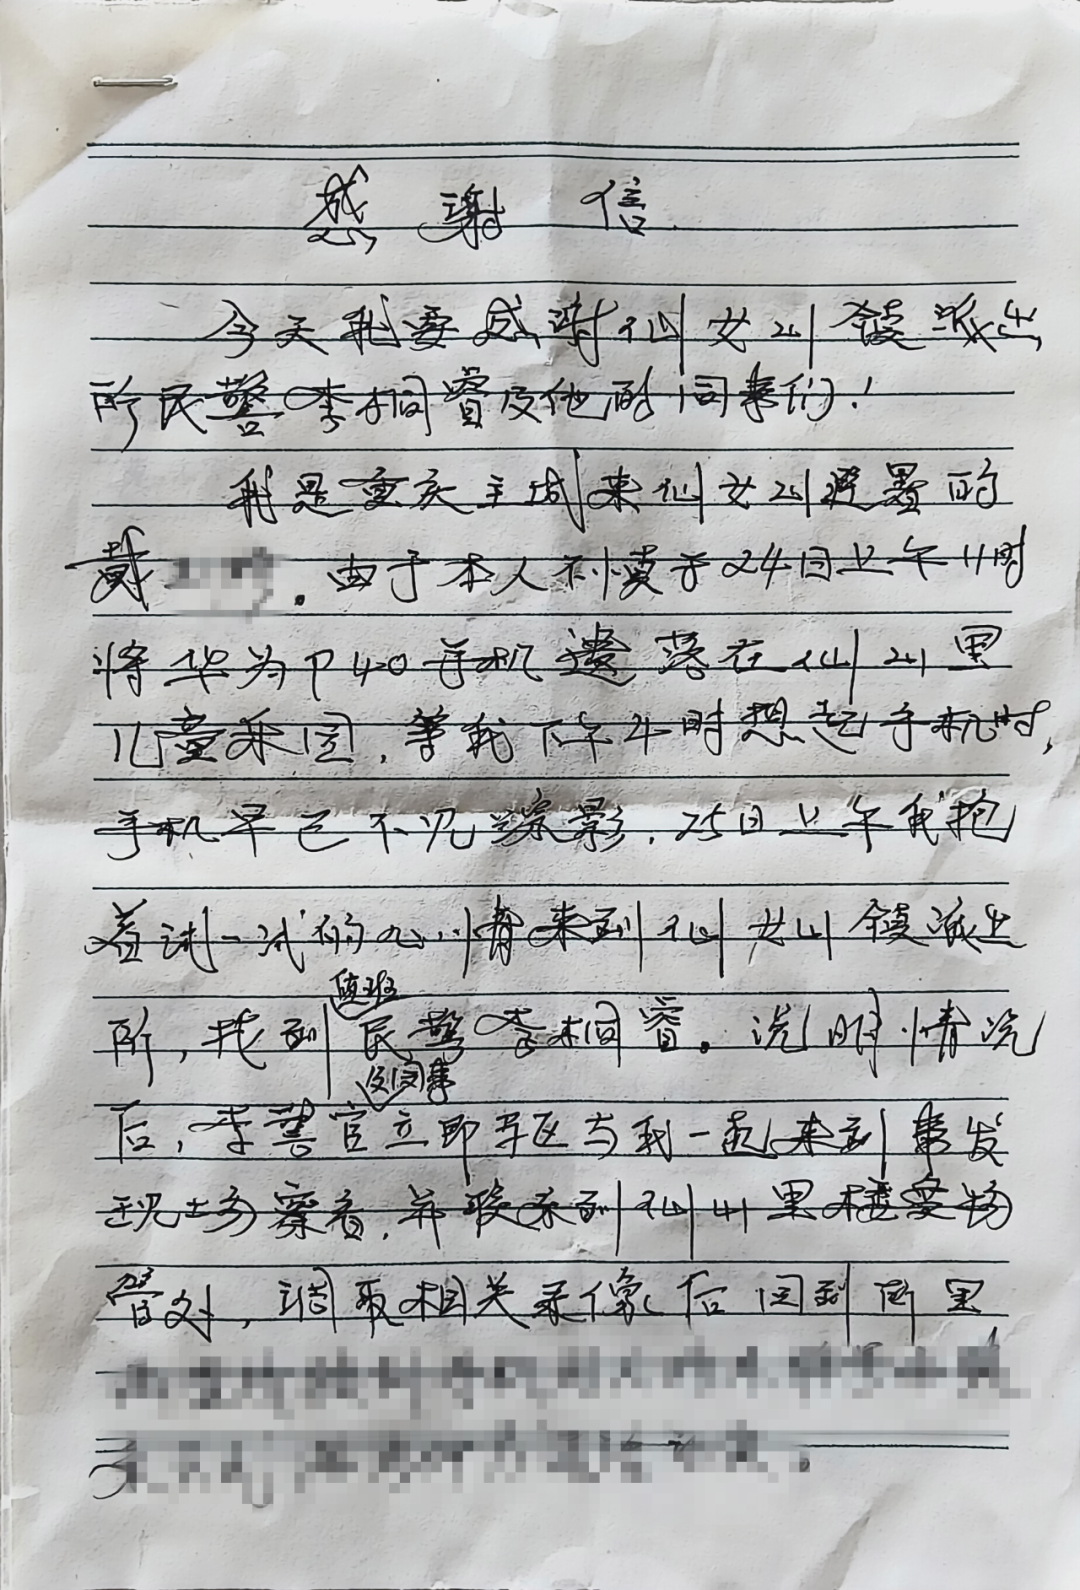 感谢信
今天我要感谢仙女山镇派出
所民警李相睿及他的同事们！
我是重庆主城来仙女山避暑的
戴 。由于本人不慎于24日上午11时
将华为P40手机遗落在仙山里
儿童乐园，等我下午4时想起手机时，
手机早已不见踪影，25日上午我抱
着试一试的心情来到仙女山镇派出
所，找到值班民警李相睿。说明情况
后，李警官及同事立即驱车与我一起来到事发
现场察看，并联系到仙山里楼委物
管处，调取相关录像后回到所里